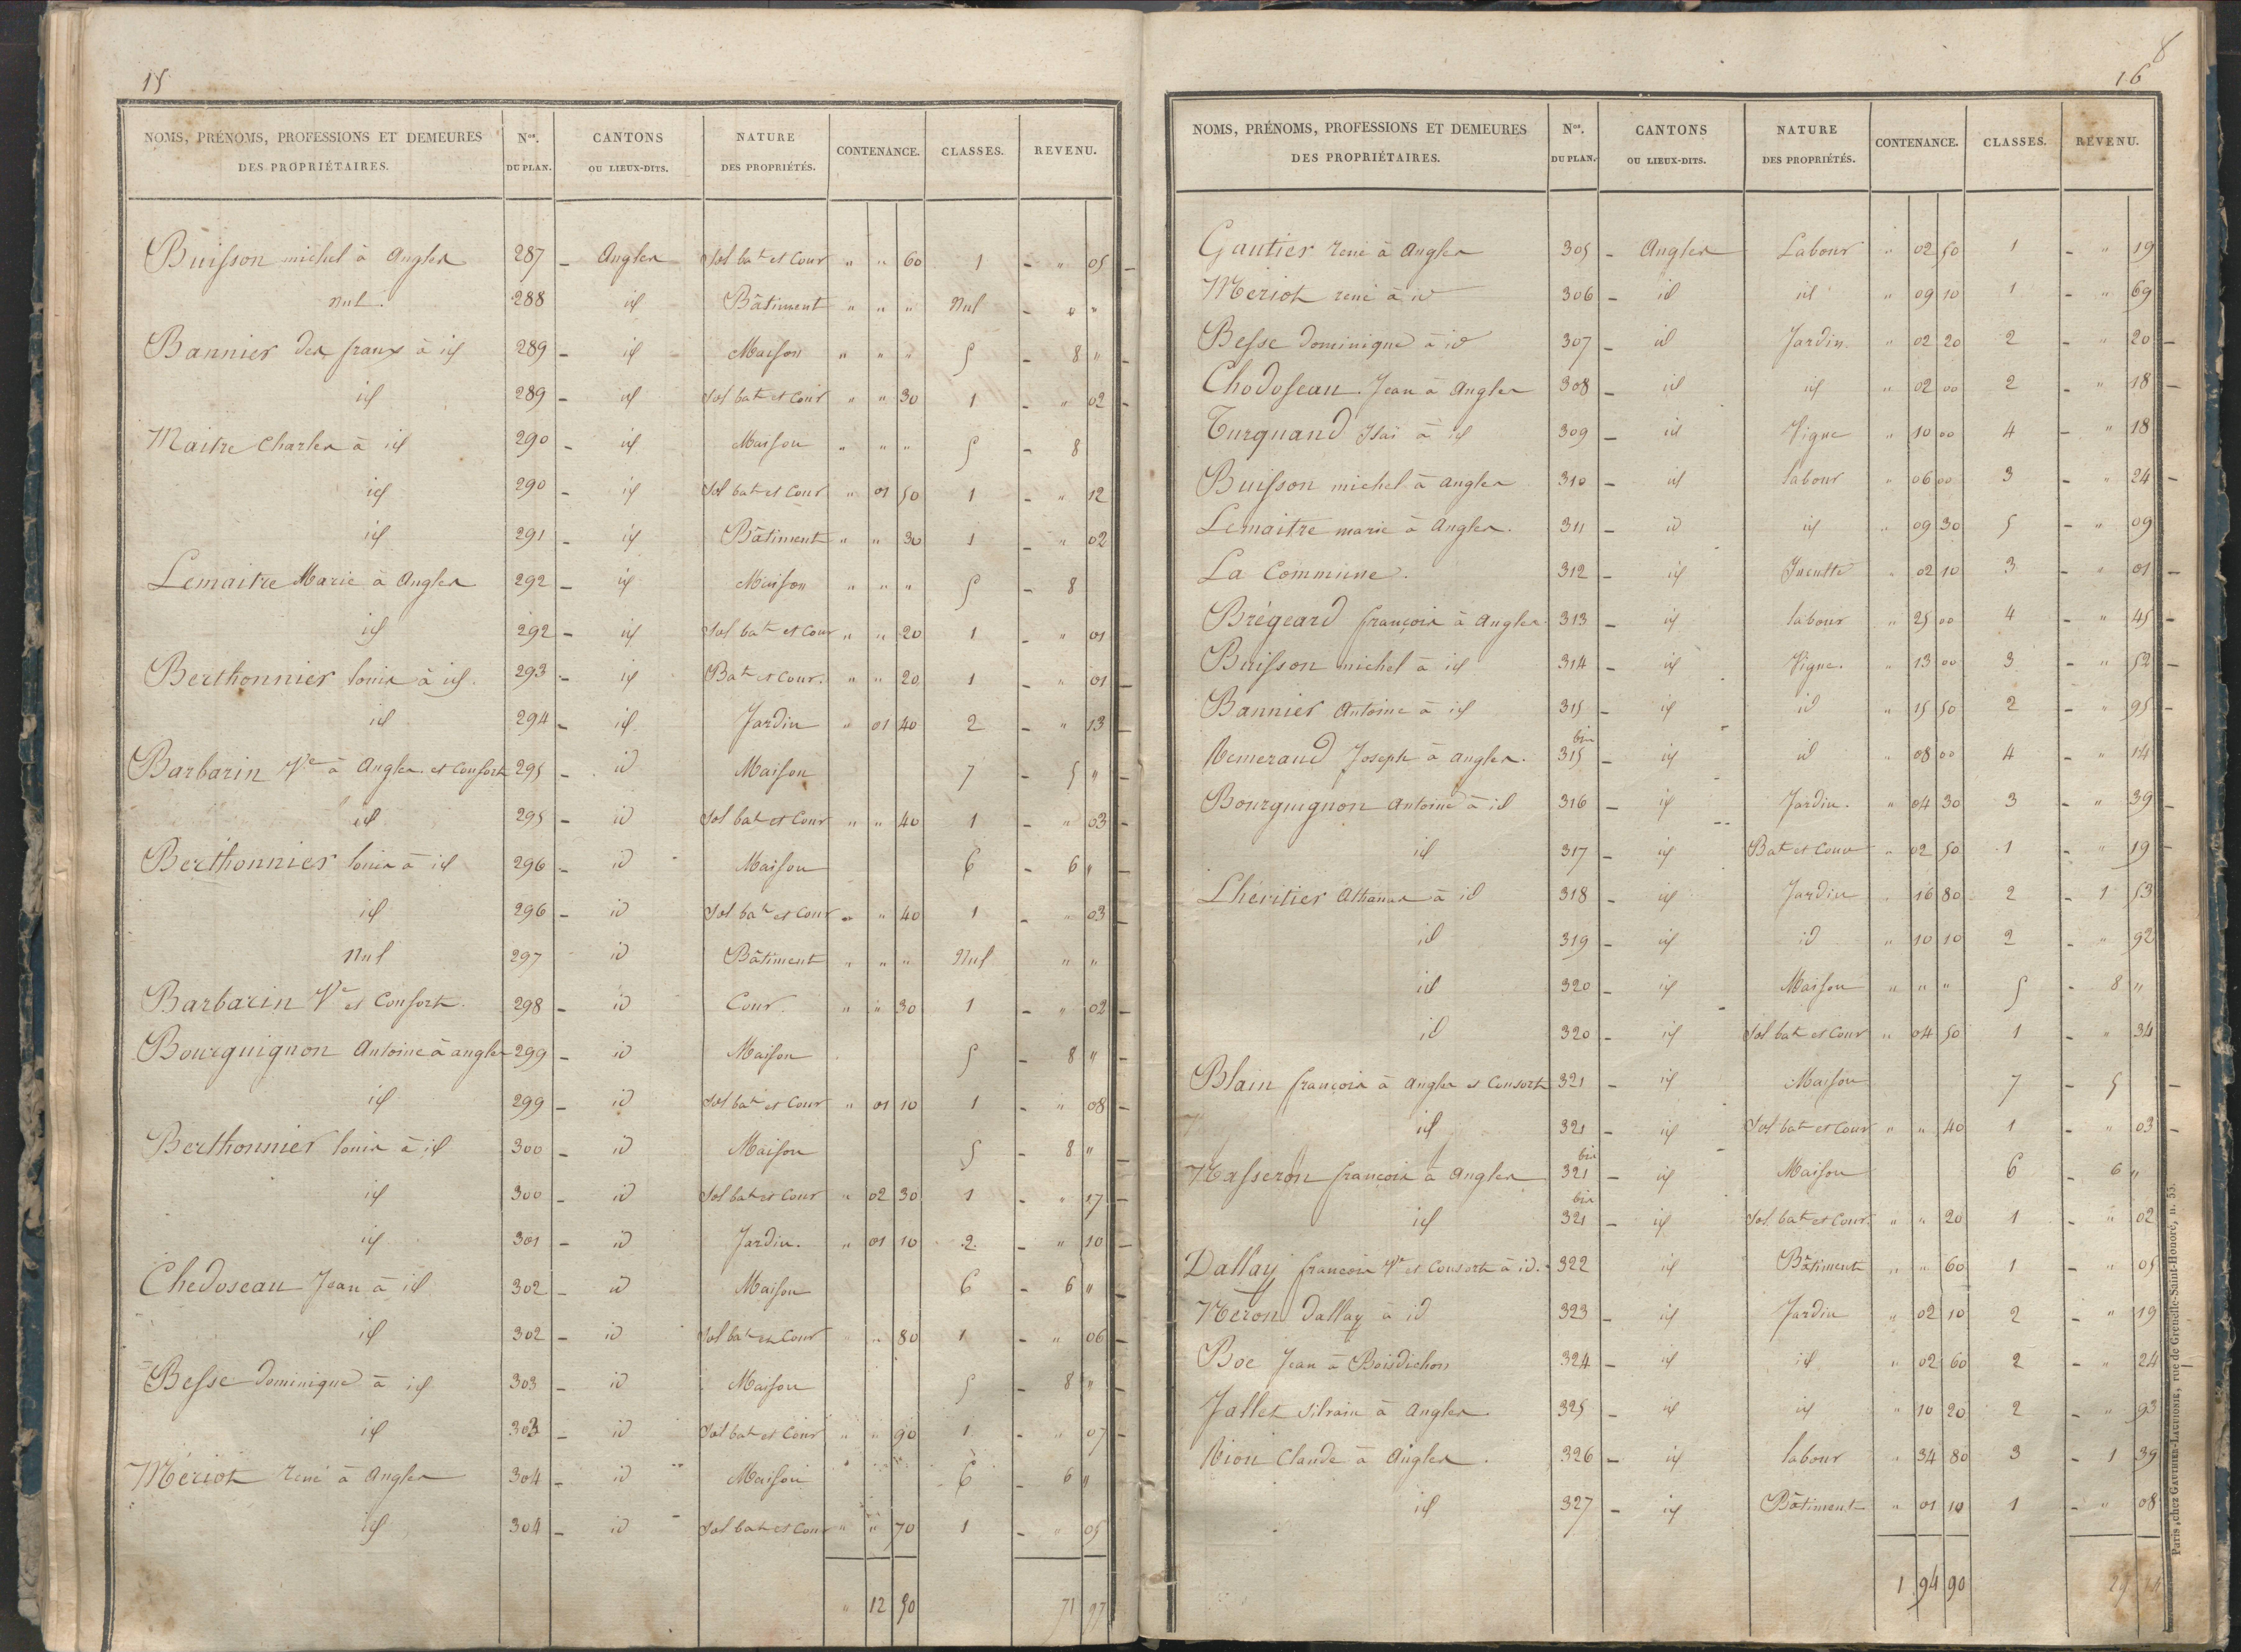 15
NOMS, PRÉNOMS, PROFESSIONS ET DEMEURES DES PROPRIÉTAIRES. Nos. DU PLAN. CANTONS OU LIEUX-DITS. NATURE DES PROPRIÉTÉS. CONTENANCE. CLASSES. REVENU.
Buisson michel à Angles 287 - Angles Sol bat et Cour " " 60 1 - " 05 -
nul. 288 id Bâtiment " " " Nul - " "
Bannier des fraux à id 289 - id Maison " " " 5 - 8 " -
id 289 - id Sol bat et Cour " " 30 1 - " 02 -
Maitre Charles à id 290 - id Maison " " " 5 - 8
id 290 - id Sol bat et Cour " 01 50 1 - " 12
id 291 - id Bâtiment " " 30 1 - " 02
Lemaitre Marie à Angles 292 - id Maison " " " 5 - 8
id 292 - id Sol bat et Cour " " 20 1 - " 01
Berthonnier louis à id. 293 - id Bat et Cour. " " 20 1 - " 01 -
id 294 - id Jardin " 01 40 2 - " 13 -
Barbarin Ve à Angles et Consorts 295 - id Maison 7 - 5 " -
id 295 - id Sol bat et Cour " " 40 1 - " 03 -
Berthonnier louis à id 296 - id Maison 6 - 6 " -
id 296 - id Sol bat et Cour " " 40 1 - " 03 -
Nul 297 id Bâtiment " " " Nul " "
Barbarin Ve et Consorts. 298 - id Cour. " " 30 1 - " 02 -
Bourguignon Antoine à angles 299 - id Maison 5 - 8 " -
id 299 - id Sol bat et Cour " 01 10 1 - " 08 -
Berthonnier louis à id 300 - id Maison 5 - 8 " -
id 300 - id Sol bat et Cour " 02 30 1 - " 17 -
id 301 - id Jardin. " 01 10 2 - " 10 -
Chedoseau Jean à id 302 - id Maison 6 - 6 " -
id 302 - id Sol bat et Cour " " 80 1 - " 06 -
Besse Dominique à id 303 - id Maison 5 - 8 " -
id 303 - id Sol bat et Cour " " 90 1 - " 07 -
Mériot René à Angles 304 - id Maison 6 - 6 "
id 304 - id Sol bat et Cour " " 70 1 - " 05
" 12 50 71 97
8
16
NOMS, PRÉNOMS, PROFESSIONS ET DEMEURES DES PROPRIÉTAIRES. Nos. DU PLAN. CANTONS OU LIEUX-DITS. NATURE DES PROPRIÉTÉS. CONTENANCE. CLASSES. REVENU.
Gautier René à Angles 305 - Angles Labour " 02 50 1 - " 19
Mériot rené à id 306 - id id " 09 10 1 - " 69
Besse Dominique à id 307 - id Jardin " 02 20 2 - " 20 -
Chodoseau Jean à Angles 308 - id id " 02 00 2 - " 18 -
Turquand Isaï à id 309 - id Vigne " 10 00 4 - " 18
Buisson michel à Angles 310 - id labour " 06 00 3 - " 24 -
Lemaitre marie à Angles. 311 - id id " 09 30 5 - " 09
La Commune. 312 - id Inculte " 02 10 3 - " 01 -
Brégeard françois à Angles 313 - id labour " 25 00 4 - " 45 -
Buisson michel à id 314 - id Vigne. " 13 00 3 - " 52 -
Bannier Antoine à id 315 - id id " 15 50 2 - " 95 -
Nemerand Joseph à angles. 315 bis - id id " 08 00 4 - " 14
Bourguignon Antoine à id 316 - id Jardin. " 04 30 3 - " 39 -
id 317 - id Bat et Cour " 02 50 1 - " 19 -
Lhéritier Athanas à id 318 - id Jardin " 16 80 2 - 1 53
id 319 - id id " 10 10 2 - " 92
id 320 - id Maison " " " 5 - 8 "
id 320 - id Sol bat et Cour " 04 50 1 - " 34
Blain françois à Angles et Consorts 321 - id Maison 7 - 5 -
id 321 - id Sol bat et Cour " " 40 1 - " 03 -
Masseron françois à Angles 321 bis - id Maison 6 - 6 "
id 321 bis - id Sol bat et Cour. " " 20 1 - " 02
Dallay françois Ve et Consorts à id. 322 id Bâtiment " " 60 1 - " 05
Méron Dallay à id 323 id Jardin " 02 10 2 - " 19
Boe Jean à Boisdichon 324 - id id " 02 60 2 - " 24 -
Jallet Silvain à Angles 325 - id id " 10 20 2 - " 93
Nion Claude à Angles. 326 - id labour " 34 80 3 - 1 39
id 327 - id Bâtiment " 01 10 1 - " 08
1 94 90 29
Paris, chez GAUTHIER-LAGUIONIE, rue de Grenelle-Saint-Honoré, n. 55.